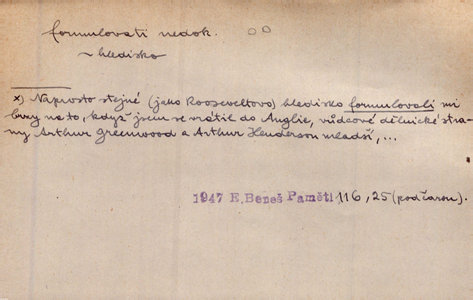 formulovati nedok.
~ hledisko
x) Naprosto stejné (jako Rooseveltovo) hledisko formulovali mi
brzy na to, když jsem se vrátil do Anglie, vůdcové dělnické stra-
ny Arthur Greenwood a Arthur Henderson mladší, ...
1947 E. Beneš Paměti 116, 25 (pod čarou).